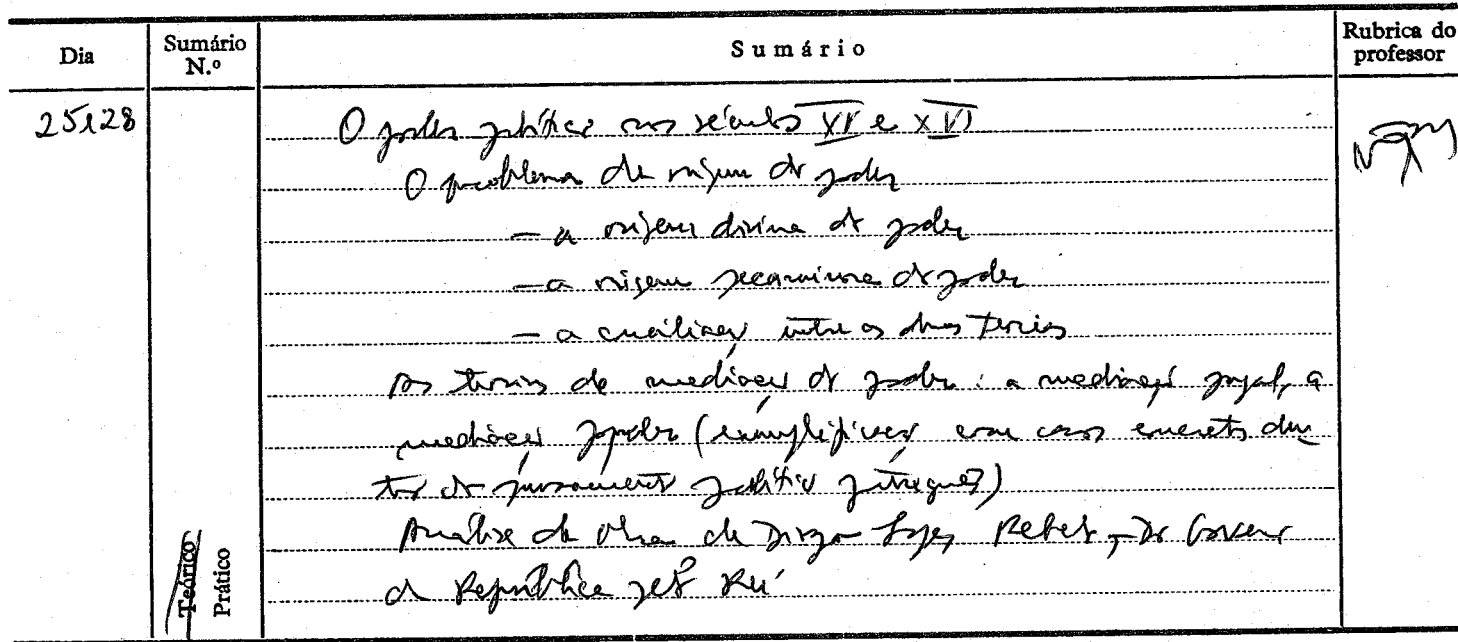 Dia
Sumário N.º
Sumário
Rubrica do professor
25 e 28
O poder político nos séculos XV e XVI
O problema da origem do poder
– a origem divina do poder
– a origem pecaminosa do poder
– a conciliação entre as duas teorias
As teorias da mediação do poder: a mediação papal, a
mediação popular (exemplificação com casos concretos den
tro do pensamento político português)
Análise da obra de Diogo Lopes Rebelo, Do Governo
da República pelo Rei
Teórico
Prático